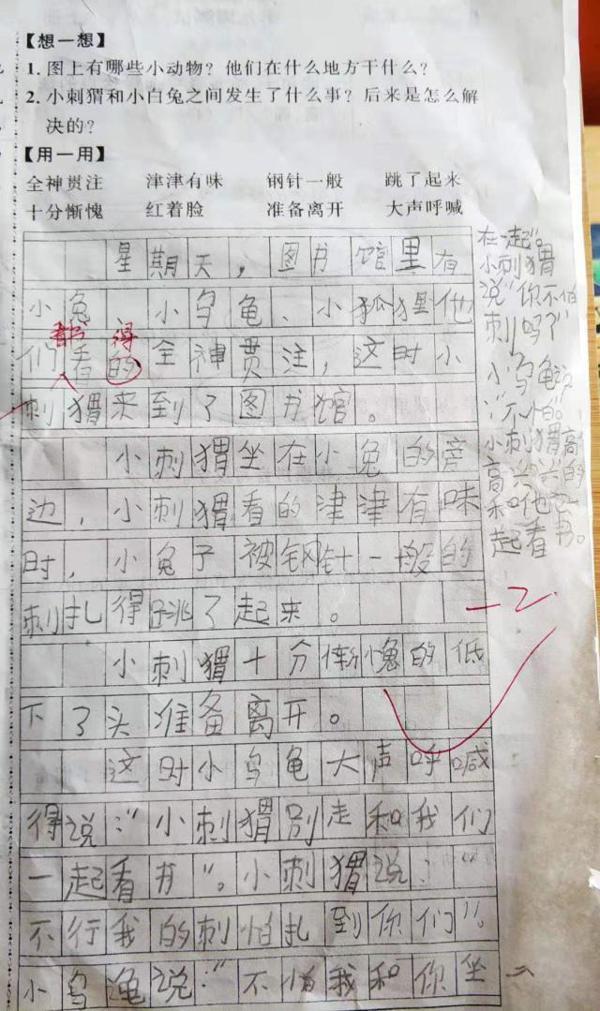 【想一想】
1. 图上有哪些小动物？他们在什么地方干什么？
2. 小刺猬和小白兔之间发生了什么事？后来是怎么解
决的？
【用一用】
全神贯注 津津有味 钢针一般 跳了起来
十分惭愧 红着脸 准备离开 大声呼喊
星期天，图书馆里有
小兔、小乌龟、小狐狸他
都 得
们看的全神贯注，这时小
刺猬来到了图书馆。
小刺猬坐在小兔的旁
边，小刺猬看的津津有味
时，小兔子被钢针一般的
刺扎得跳了起来。
-2
小刺猬十分惭愧的低
下了头准备离开。
这时小乌龟大声呼喊
得说：“小刺猬别走和我们
一起看书”。小刺猬说：“
不行我的刺怕扎到你们”。
小乌龟说：“不怕我和你坐
在一起”。
小刺猬
说“你不怕
刺吗？”
小乌龟说
：“不怕”。
小刺猬高
高兴兴的
和他们一
起看书。